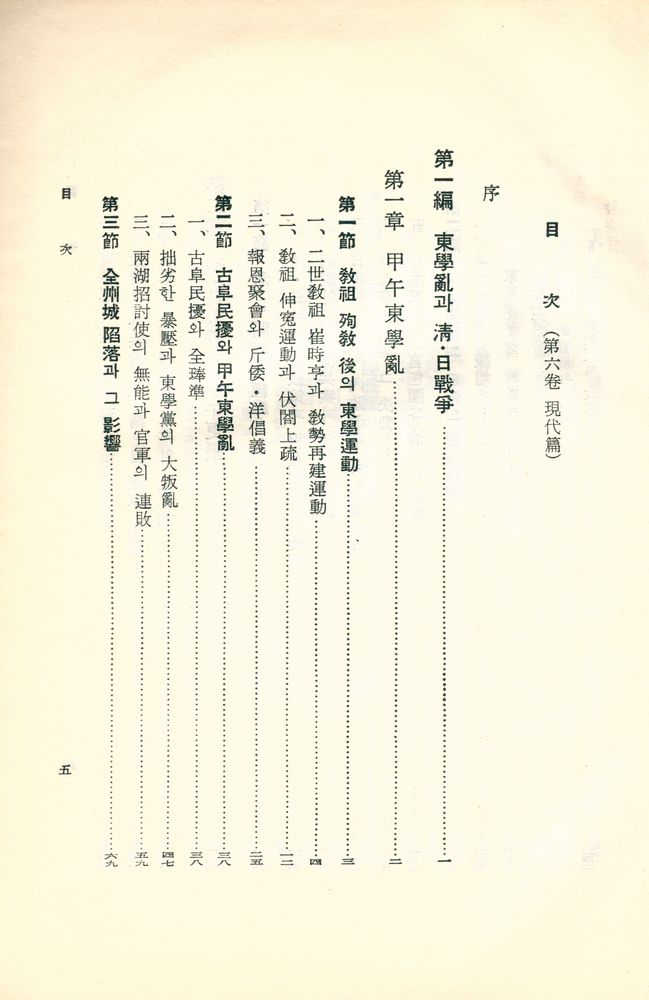 目 次 (第六卷 現代篇)
序
第一編 東學亂과 淸・日戰爭 一
第一章 甲午東學亂 二
第一節 敎祖 殉敎 後의 東學運動 三
一、二世敎祖 崔時亨과 敎勢再建運動 四
二、敎祖 伸寃運動과 伏閤上疏 一二
三、報恩聚會와 斥倭・洋倡義 二五
第二節 古阜民擾와 甲午東學亂 三八
一、古阜民擾와 全琫準 三八
二、拙劣한 暴壓과 東學黨의 大叛亂 四七
三、兩湖招討使의 無能과 官軍의 連敗 五九
第三節 全州城 陷落과 그 影響 六九
目 次 五